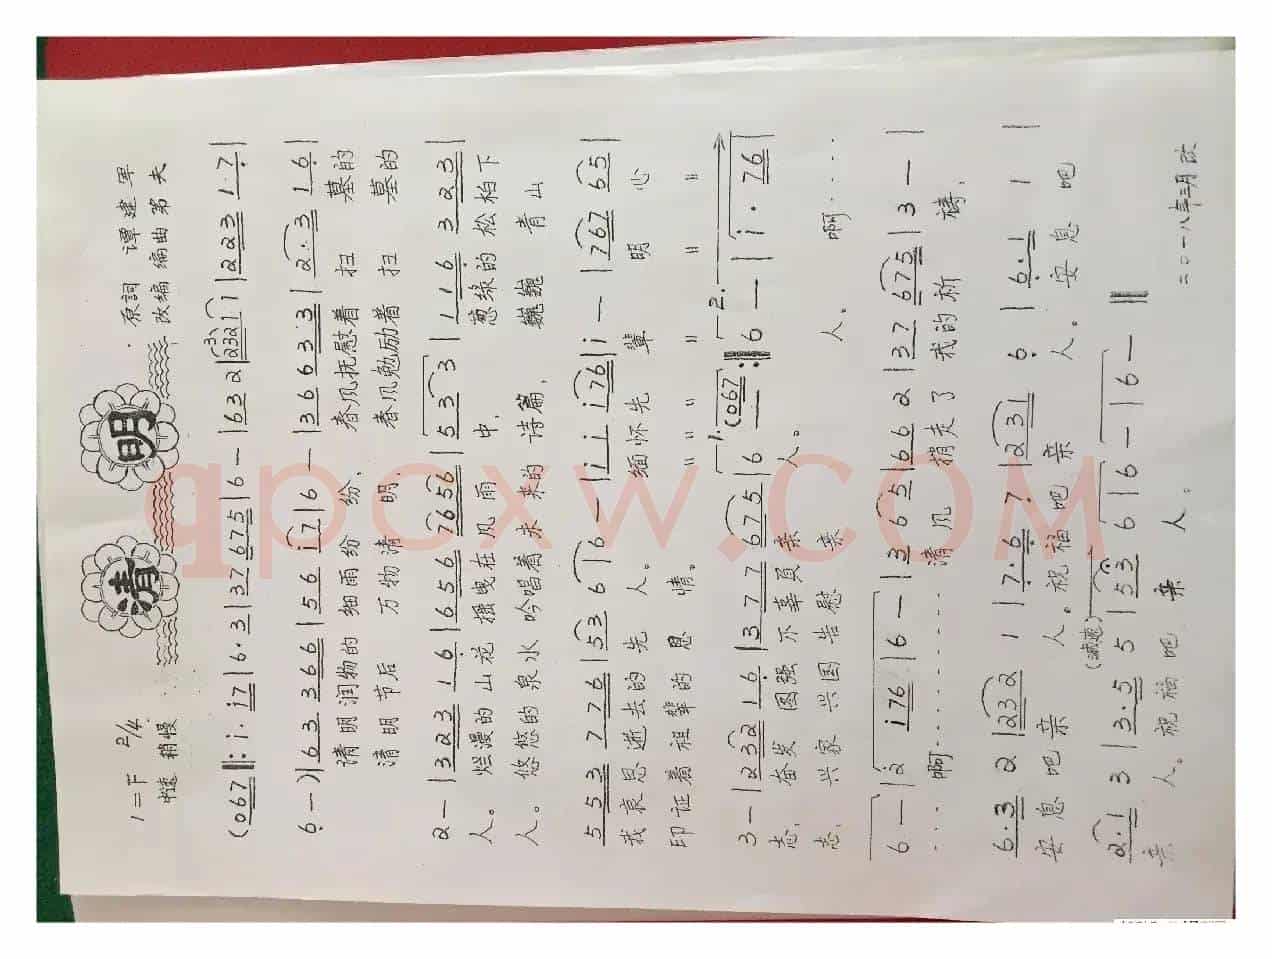 清明
原詞 谭建军
改编 编曲 第夫
1=F 2/4
中速 稍慢
(067 ‖: i· i7 | 6·3 | 37 675 | 6 — | 632 | 2321 i | 223 1·7 |
6 — ) | 63 366 | 56 i7 | 6 — | 366 33 | 2·3 16 |
请明润物的 细雨纷 纷, 春风抚慰着 扫 墓的
清明节后 万物清 明, 春风勉励着 扫 墓的
2 — | 323 16 | 656 7656 | 53 3 | 116 323 |
人。 烂漫的山花 摇曳在风雨 中, 葱绿的松柏下
人。 悠悠的泉水 吟唱着未来的 诗篇, 巍巍 青山
553 776 | 53 6 | 6 — | i i i76 | i — | 767 65 |
我哀思逝去的 先 人。 缅怀先 辈 明 心
印证着祖辈的 恩 情。 〃 〃 〃 〃 〃 〃
3 — | 232 16 | 3 77 675 | 6 — (067 :‖ 6 — | i· 76 |
志, 奋发 图强 不辜負 亲 人。 人。 啊·····
志, 兴家 兴国 告慰 亲
6 — | 2 i76 | 6 — | 3 65 | 66 2 | 37 675 | 3 — |
···啊········· 清风 捎走了 我的祈 祷,
6·3 2 | 232 1 | 7·6 7 | 231 6 | 6·1 1 |
安息吧 亲 人。 祝福吧 亲 人。 安息 吧
(减速)
2·1 3 | 3·5 5 | 53 6 | 6 — | 6 — ‖
亲 人。 祝福吧 亲 人。
二〇一八年三月改
qpcxw.com